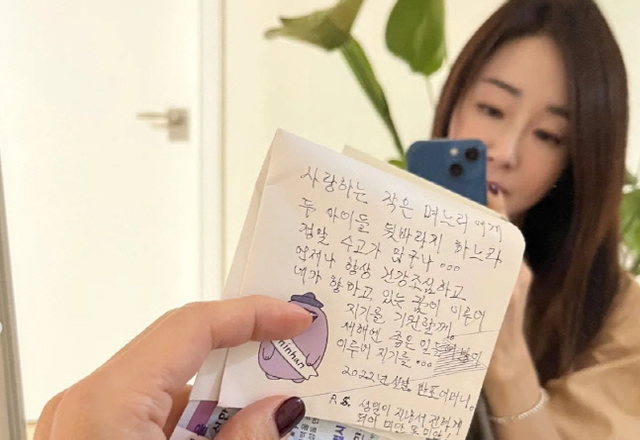 사랑하는 작은 며느리에게
두 아이들 뒷바라지 하느라
정말 수고가 많구나...
언제나 항상 건강조심하고
네가 향하고 있는 꿈이 이루어
지기를 기원할께.
새해엔 좋은 일들
이루어 지기를...
2022년 반포어머니.
P.S. 생일이 지나서 전하게
되어 미안
minhan